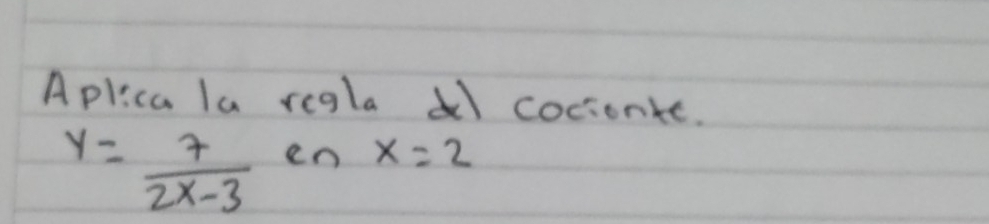 Aplica la regla del cociente.
Y = 7 / 2X-3 en X = 2